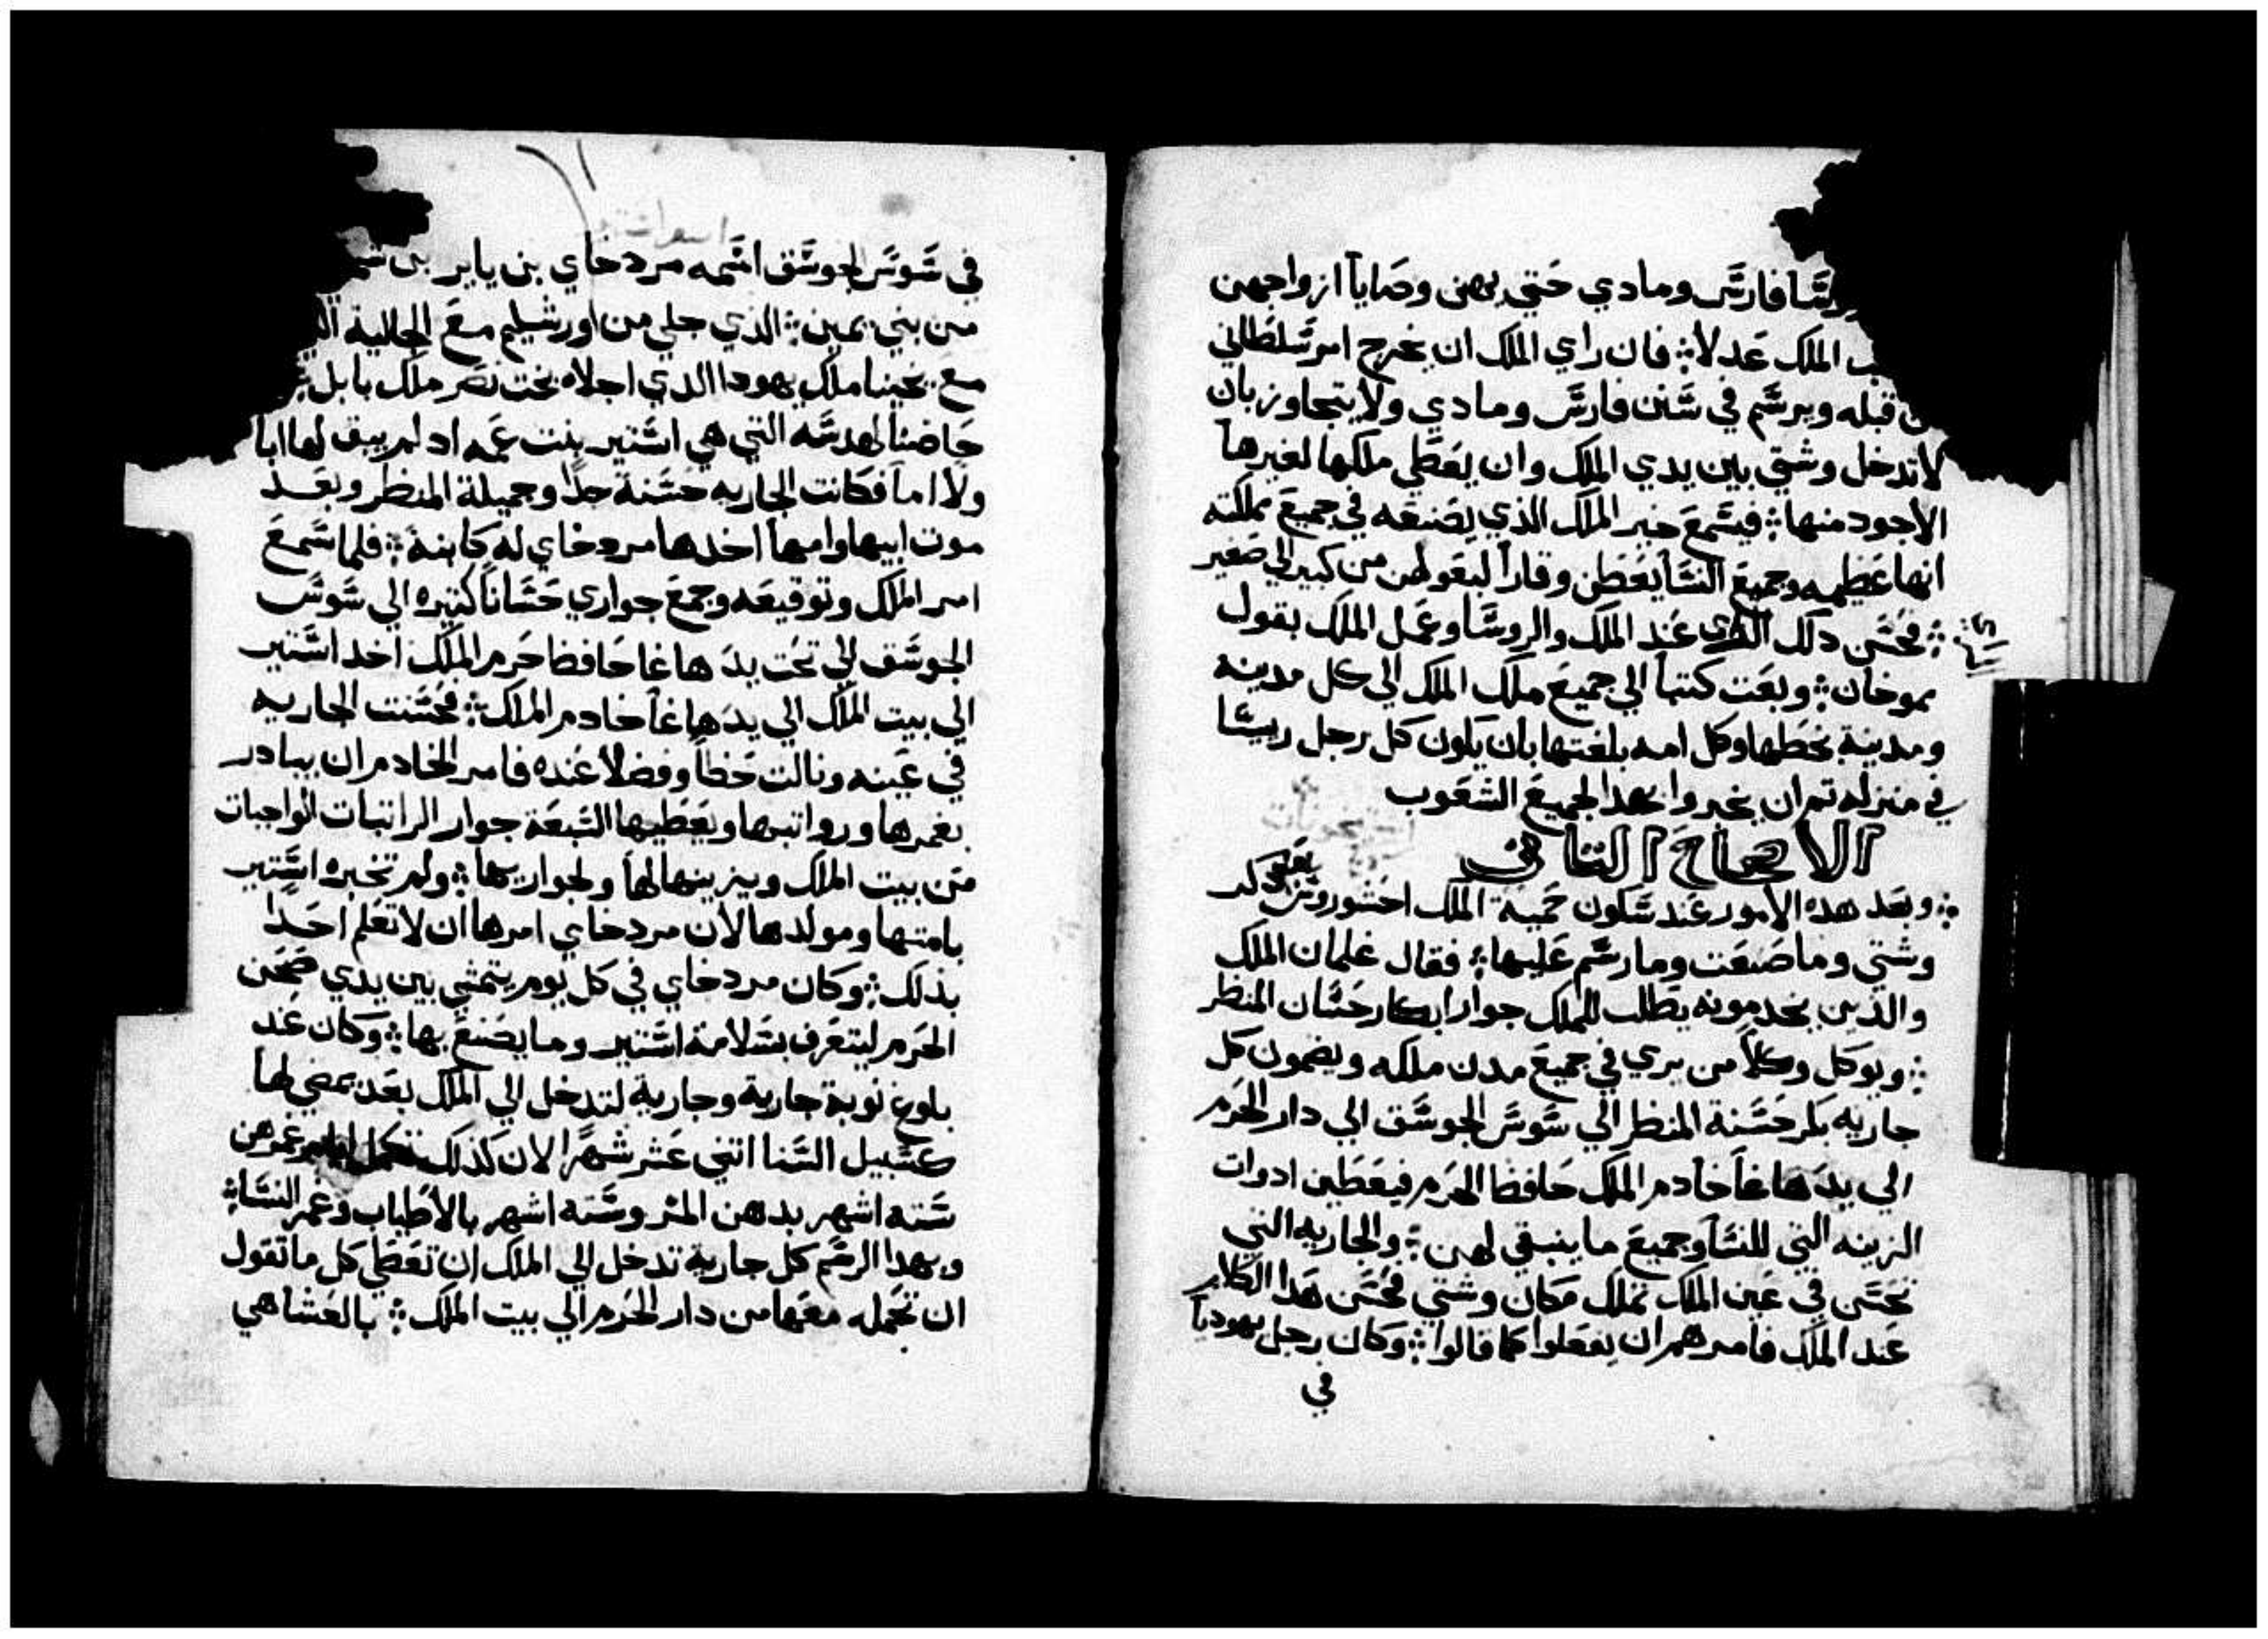 فارس ومادي حتي يهن وصايا ازواجهن
الملك عدلا فان راي الملك ان يخرج امر سلطاني
قبله ويرسم في سنن فارس ومادي ولا يتجاوز بان
لا تدخل وشتي بين يدي الملك وان يعطي ملكها لغيرها
الاجود منها فيسمع خبر الملك الذي يصنعه في جميع مملكته
انها عظيمه وجميع النسا يعطن وقارا لبعولهن من كبير الي صغير
فحسن دلك عند الملك والروسا وعمل الملك بقول
موخان وبعت كتبا الي جميع ملك الملك الي كل مدينه
ومدينة بخطها وكل امه بلغتها بان يكون كل رجل رييسا
في منزله تم ان يخبروا بهدا لجميع الشعوب
الاصحاح التاني
وبعد هده الامور عند سكون حمية الملك احشوروش دكر
وشتي وما صنعت وما رسم عليها فقال غلمان الملك
والذين يخدمونه يطلب للملك جوار ابكار حسان المنظر
ويوكل وكلا من يري في جميع مدن ملكه ويضمون كل
جاريه بكر حسنة المنظر الي سوس الجوسق الي دار الحرم
الي يد هاغا خادم الملك حافظ الحرم فيعطين ادوات
الزينه التي للنسا وجميع ما ينبقي لهن والجاريه التي
تحسن في عين الملك تملك مكان وشتي فحسن هدا الكلام
عند الملك فامرهم ان يفعلوا كما قالوا وكان رجل يهوديا
في
في سوس الجوسق اسمه مردخاي بن ياير بن
من بني يمين الذي جلي من اورشليم مع الجالية
مع يخنيا ملك يهودا الدي اجلاه بخت نصر ملك بابل
حاضنا لهدسه التي هي استير بنت عمه اد لم يبق لها ابا
ولا اما فكانت الجاريه حسنة جدا وجميلة المنظر وبعد
موت ابيها وامها اخدها مردخاي له كابنة فلما سمع
امر الملك وتوقيعه وجمع جواري حسانا كتيره الي سوس
الجوسق الي تحت يد هاغا حافظ حرم الملك اخد استير
الي بيت الملك الي يد هاغا خادم الملك فحسنت الجاريه
في عينه ونالت حظا وفضلا عنده فامر الخادم ان يبادر
بغمرها ورواتبها ويعطيها السبعة جوار الراتبات الواجبات
من بيت الملك ويزينها لها ولجواريها ولم تخبره استير
بامتها ومولدها لان مردخاي امرها ان لا تعلم احدا
بذلك وكان مردخاي في كل يوم يتمشي بين يدي صحن
الحرم ليتعرف بسلامة استير وما يصنع بها وكان عند
بلوغ نوبة جارية وجارية لتدخل الي الملك بعد يمضي لها
كسبيل النسا اتني عشر شهرا لان كذلك تكمل ايام غمرهن
سته اشهر بدهن المر وسته اشهر بالاطياب وغمر النسا
وبهدا الرسم كل جارية تدخل الي الملك ان تعطي كل ما تقول
ان تحمله معها من دار الحرم الي بيت الملك بالعشا هي